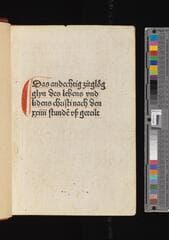 Das andechtig zitglög
glyn des lebens vnd
lidens christi nach den
xxiiii stundē vß geteilt